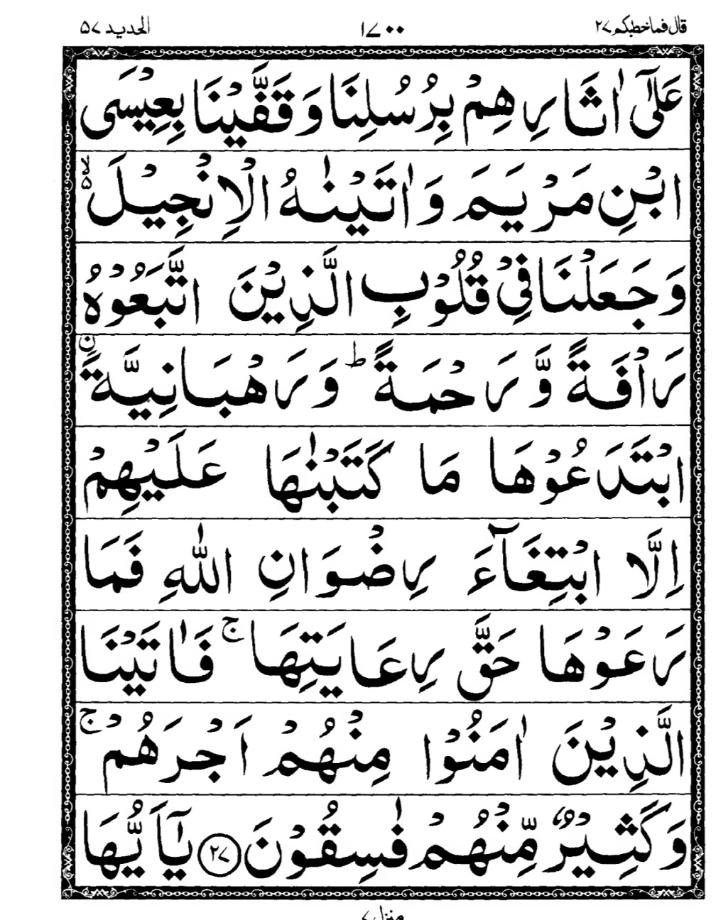 قال فما خطبکم ۲۷ ۱۷۰۰ الحدید ۵۷
عَلٰٓى اٰثَارِهِمْ بِرُسُلِنَا وَقَفَّيْنَا بِعِيْسَى
ابْنِ مَرْيَمَ وَاٰتَيْنٰهُ الْاِنْجِيْلَ ۙ۵
وَجَعَلْنَا فِيْ قُلُوْبِ الَّذِيْنَ اتَّبَعُوْهُ
رَاْفَةً وَّرَحْمَةً ؕ وَرَهْبَانِيَّةَ ِۨ
ابْتَدَعُوْهَا مَا كَتَبْنٰهَا عَلَيْهِمْ
اِلَّا ابْتِغَآءَ رِضْوَانِ اللّٰهِ فَمَا
رَعَوْهَا حَقَّ رِعَايَتِهَا ۚ فَاٰتَيْنَا
الَّذِيْنَ اٰمَنُوْا مِنْهُمْ اَجْرَهُمْ ۚ
وَكَثِيْرٌ مِّنْهُمْ فٰسِقُوْنَ ۲۷ يٰۤاَيُّهَا
منزل ۷